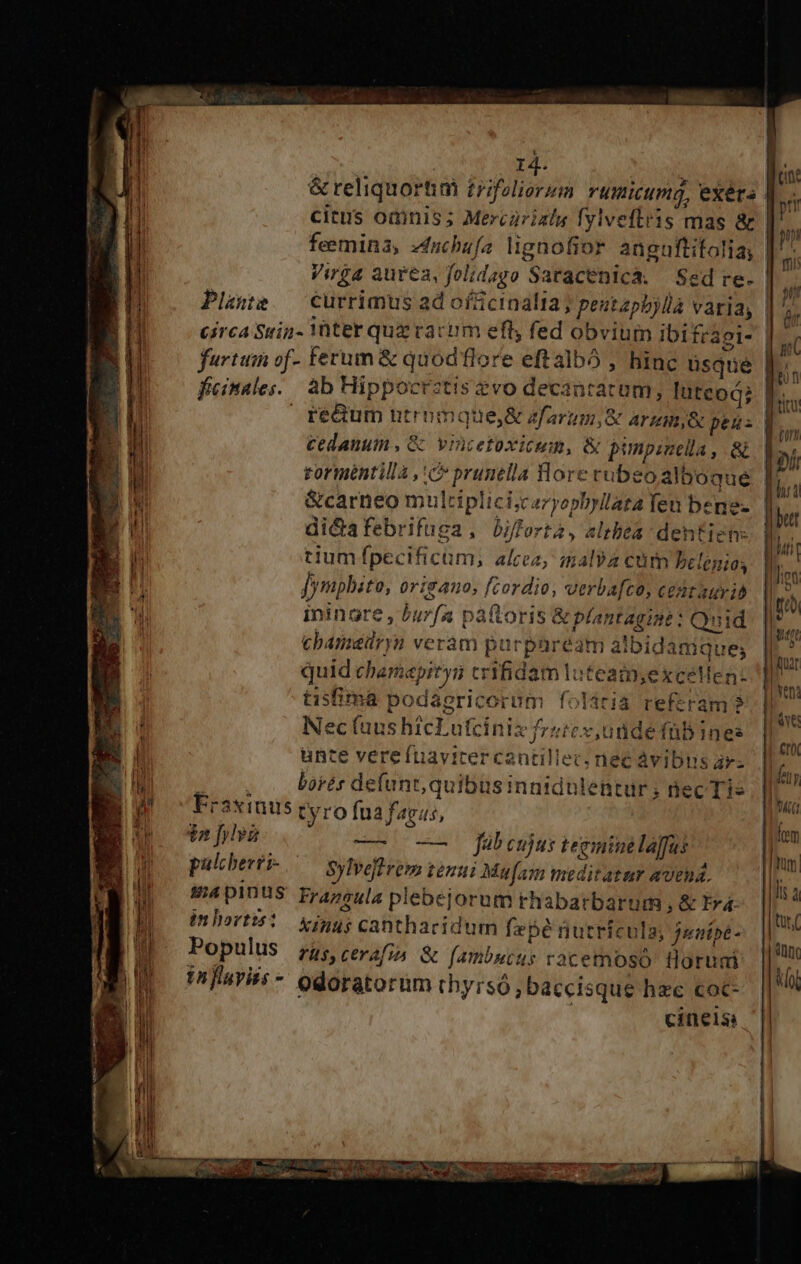 14.
& reliquorum trifoliorum rumicumq́, exér-
citus omnis; Mercurialis sylvestris mas &
fœmina, Anchusa lignosior angustifolia,
Virga aurea, solidago Saracenica. Sed re-
currimus ad officinalia; pentaphylla varia,
inter quæ rarum est, sed obvium ibi fragi-
ferum & quod flore est albô, hinc usque
ab Hippocratis ævo decantatum, luteoq́;
rectum utrumque, & asarum, & arum, & peu-
cedanum, & vincetoxicum, & pimpinella, &
tormentilla, & prunella flore rubeo alboque
& carneo multiplici, caryophyllata seu bene-
dicta febrifuga, bistorta, althea dentien-
tium specificum, alcea, malva cum helenio,
symphito, origano, scordio, verbasco, centaurio
minore, bursa pastoris & plantagine: Quid
chamedryn veram purpuream albidamque,
quid chamepityn trifidam luteam, excellen-
tissima podagricorum solatia referam?
Nec suus hîc Lusciniæ frutex, unde sub ines-
unte vere suaviter cantillet, nec avibus ar-
bores desunt, quibus innidulentur; nec Ti-
tyro sua fagus,
— — sub cujus tegmine lassus
Sylvestrem tenui Musam meditatur avenâ.
Frangula plebejorum rhabarbarum, & Fra-
xinus cantharidum sæpè nutricula, junipe-
rus, cerasus & sambucus racemosô florum
odoratorum thyrsô, baccisque hæc coc-
cineis,
Plantæ
circa Suin-
furtum of-
ficinales.
Fraxinus
in sylvâ
pulcherri-
ma pinus
in hortis:
Populus
in fluviis -